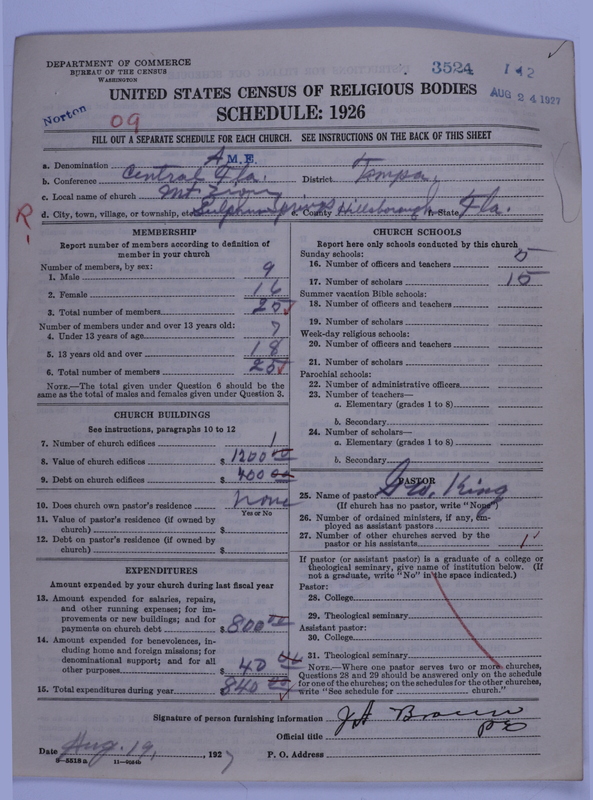 DEPARTMENT OF COMMERCE
BUREAU OF THE CENSUS
WASHINGTON
3524 I 42
AUG 24 1927
UNITED STATES CENSUS OF RELIGIOUS BODIES
Norton
09
SCHEDULE: 1926
FILL OUT A SEPARATE SCHEDULE FOR EACH CHURCH. SEE INSTRUCTIONS ON THE BACK OF THIS SHEET
a. Denomination A M.E.
b. Conference Central Fla. District Tampa.
c. Local name of church Mt Zion
R
d. City, town, village, or township, etc Sulphur Springs e. County Hillsborough f. State Fla.
MEMBERSHIP
Report number of members according to definition of
member in your church
Number of members, by sex:
1. Male 9
2. Female 16
3. Total number of members 25
Number of members under and over 13 years old:
4. Under 13 years of age 7
5. 13 years old and over 18
6. Total number of members 25
NOTE.—The total given under Question 6 should be the
same as the total of males and females given under Question 3.
CHURCH BUILDINGS
See instructions, paragraphs 10 to 12
7. Number of church edifices 1
8. Value of church edifices $ 1200 00
9. Debt on church edifices $ 400 00
10. Does church own pastor's residence none
Yes or No
11. Value of pastor's residence (if owned by
church) $
12. Debt on pastor's residence (if owned by
church) $
EXPENDITURES
Amount expended by your church during last fiscal year
13. Amount expended for salaries, repairs,
and other running expenses; for im-
provements or new buildings; and for
payments on church debt $ 800 00
14. Amount expended for benevolences, in-
cluding home and foreign missions; for
denominational support; and for all
other purposes $ 40 00
15. Total expenditures during year $ 840 00
CHURCH SCHOOLS
Report here only schools conducted by this church
Sunday schools:
16. Number of officers and teachers 5
17. Number of scholars 15
Summer vacation Bible schools:
18. Number of officers and teachers
19. Number of scholars
Week-day religious schools:
20. Number of officers and teachers
21. Number of scholars
Parochial schools:
22. Number of administrative officers
23. Number of teachers—
a. Elementary (grades 1 to 8)
b. Secondary
24. Number of scholars—
a. Elementary (grades 1 to 8)
b. Secondary
PASTOR
25. Name of pastor Geo. King
(If church has no pastor, write "None")
26. Number of ordained ministers, if any, em-
ployed as assistant pastors
27. Number of other churches served by the
pastor or his assistants 1
If pastor (or assistant pastor) is a graduate of a college or
theological seminary, give name of institution below. (If
not a graduate, write "No" in the space indicated.)
Pastor:
28. College
29. Theological seminary
Assistant pastor:
30. College
31. Theological seminary
NOTE.—Where one pastor serves two or more churches,
Questions 28 and 29 should be answered only on the schedule
for one of the churches; on the schedules for the other churches,
write "See schedule for church."
Signature of person furnishing information J H Brown
Official title P E
Date Aug. 19, 1927 P. O. Address